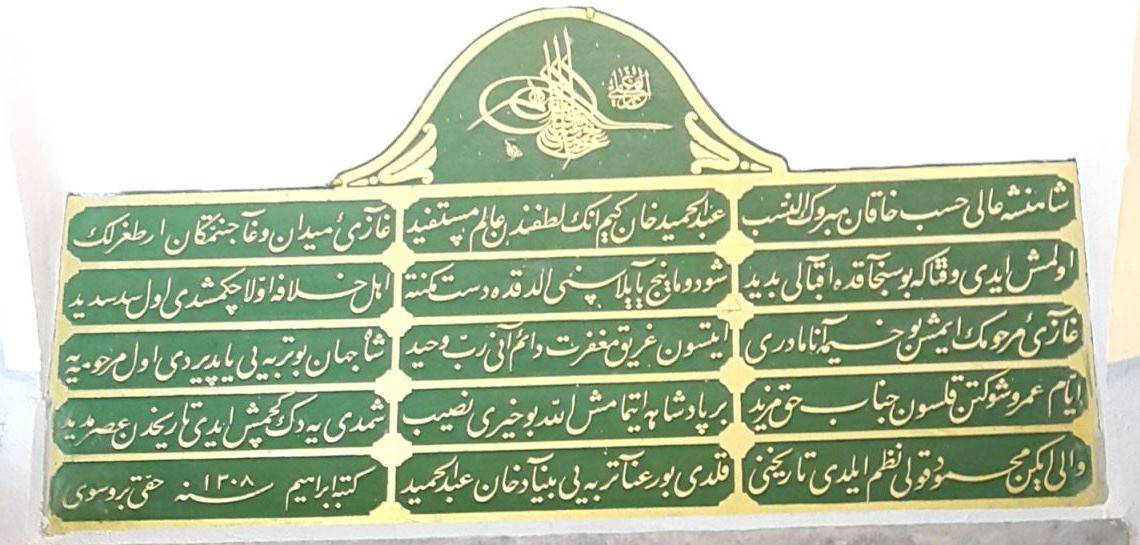 الغازي
شاهنشه عالی حسب خاقان مبروك النسب
عبدالحمید خان کیم انك لطفندن عالم مستفید
غازیٔ میدان وغا جنتمکان ارطغرلك
اولمش ایدی وقتاکه بو سنجاقده اقبالی بدید
شو دومانیج یایلاسنی الدقده دست مکنته
اهل خلافه اولا چکمشدی اول سد سدید
غازیٔ مرحومك ایمش بو خیمه آنا مادری
ایتسون غریق مغفرت دائم آنی رب وحید
شاه جهان بو تربه یی یاپدیردی اول مرحومه یه
ایام عمر و شوکتن قلسون جناب حق مزید
بر پادشاهه ایتمامش الله بو خیری نصیب
شمدی یه دك کچمش ایدی تاریخدن عصر مدید
والی ایکن محمود قولی نظم ایلدی تاریخنی
قلدی بو رعنا تربه یی بنیاد خان عبدالحمید
کتبه ابراهیم حقی بروسوی سنه ۱۳۰۸